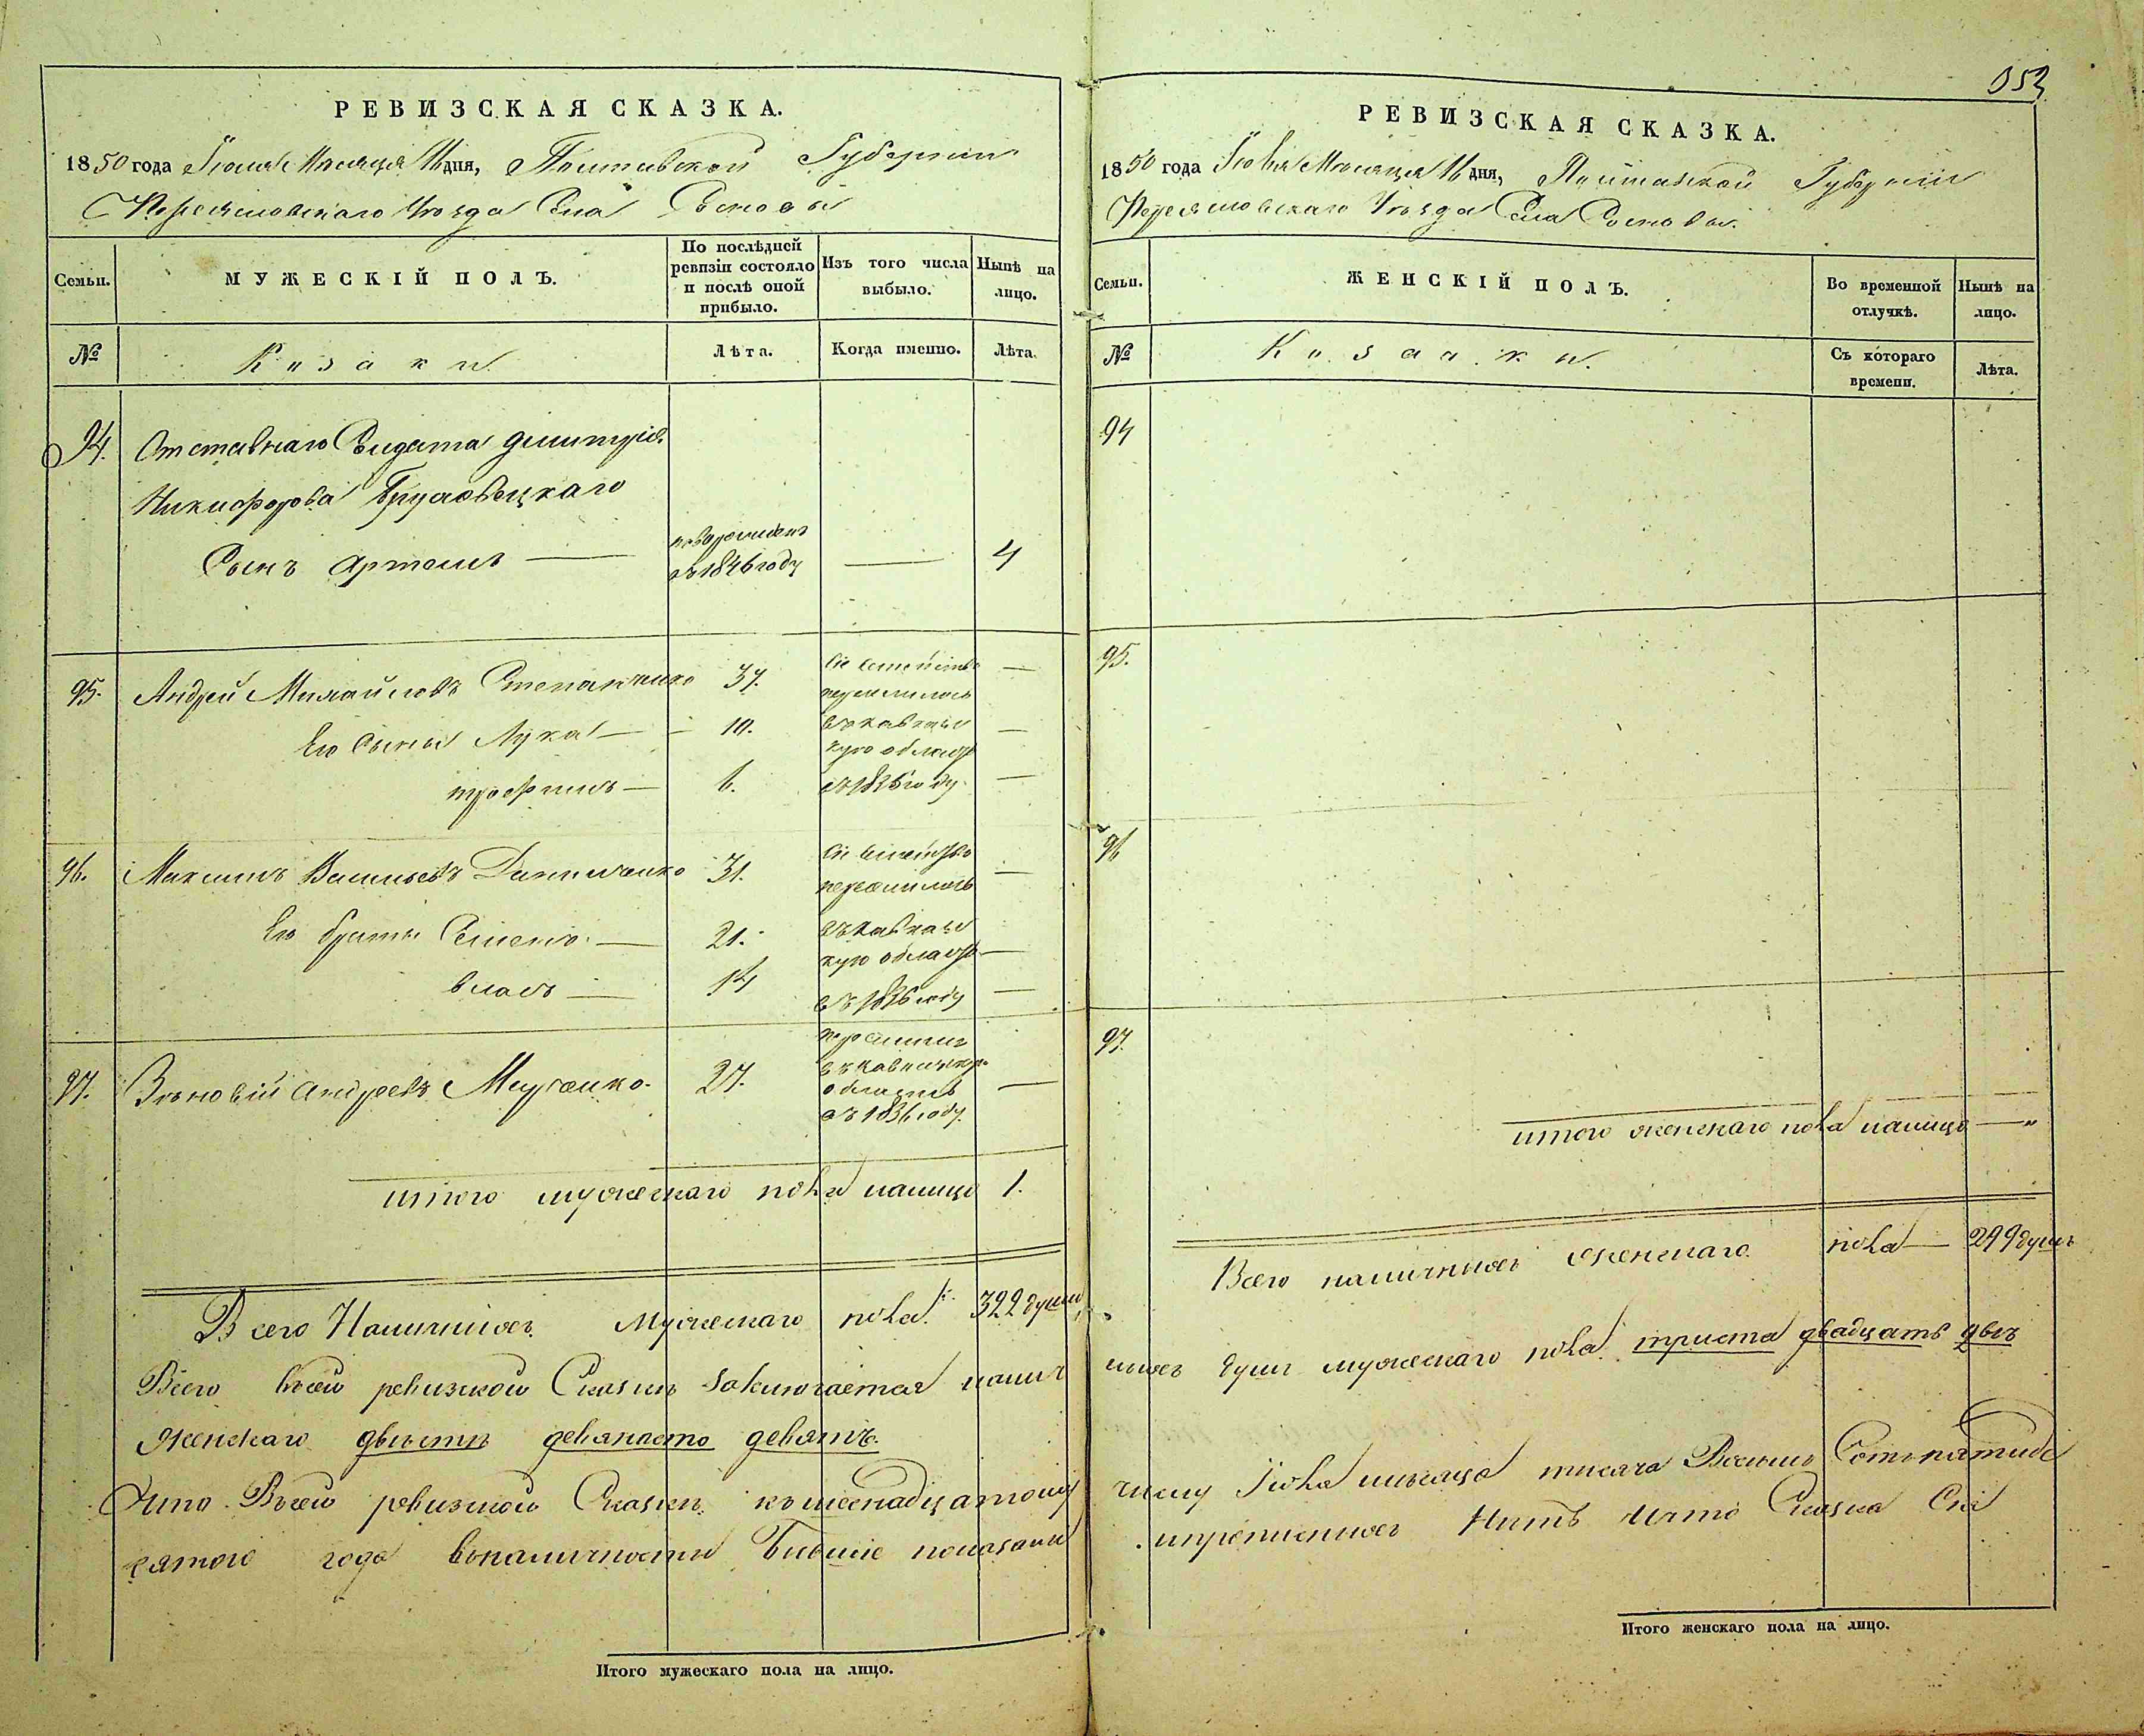 РЕВИЗСКАЯ СКАЗКА.
1850 года Іюля Мѣсяца 16 дня, Полтавской Губерніи
Переясловскаго Уѣзда Села Сосновы
Семьи.
МУЖЕСКІЙ ПОЛЪ.
По послѣдней ревизіи состояло и послѣ оной прибыло.
Изъ того числа выбыло.
Нынѣ на лицо.
№
Козаки.
Лѣта.
Когда именно.
Лѣта.
94. Отставнаго Солдата Дмитрія
Никифорова
Сынъ Артемъ — новорожденъ въ 1846 году — 4
95. Андрей Михайловъ Степаненко 37. Сіе семейство —
переселилось
Его Сыны Лука — 10. въ кавказс —
кую область
трофимъ — 6. въ 1836 году —
96. Максимъ Васильевъ Даниленко 31. Сіе семейство —
переселилось
Его братья Семенъ — 21. въ кавказс
кую область —
власъ — 14 въ 1836 году —
97. Зѣновій андреевъ 27. переселил
въ кавказскую
область —
въ 1836 году.
итого мужескаго пола налицо 1.
Всего Наличныхъ Мужескаго пола 322 души,
Всего въ сей ревизской Сказкѣ заключается налич
Женскаго двѣстѣ девяносто девять.
Что Въ сей ревизской Сказкѣ къ шеснадцатому
сятого года въ наличности Бывшіе показаны
Итого мужескаго пола на лицо.
052
РЕВИЗСКАЯ СКАЗКА.
1850 года Іюля Мѣсяца 16 дня, Полтавской Губерніи
Переясловскаго Уѣзда Села Сосновы.
Семьи.
ЖЕНСКІЙ ПОЛЪ.
Во временной отлучкѣ.
Нынѣ на лицо.
№
Козачки.
Съ котораго времени.
Лѣта.
94
95.
96
97.
итого женскаго пола налицо — "
Всего наличныхъ женскаго пола — 299 душъ
ныхъ душъ мужескаго пола триста двадцать двѣ
числу Іюля мѣсяца тысяча Восемь Сотъ пятиде
Нѣтъ И что Сказка Сія
Итого женскаго пола на лицо.